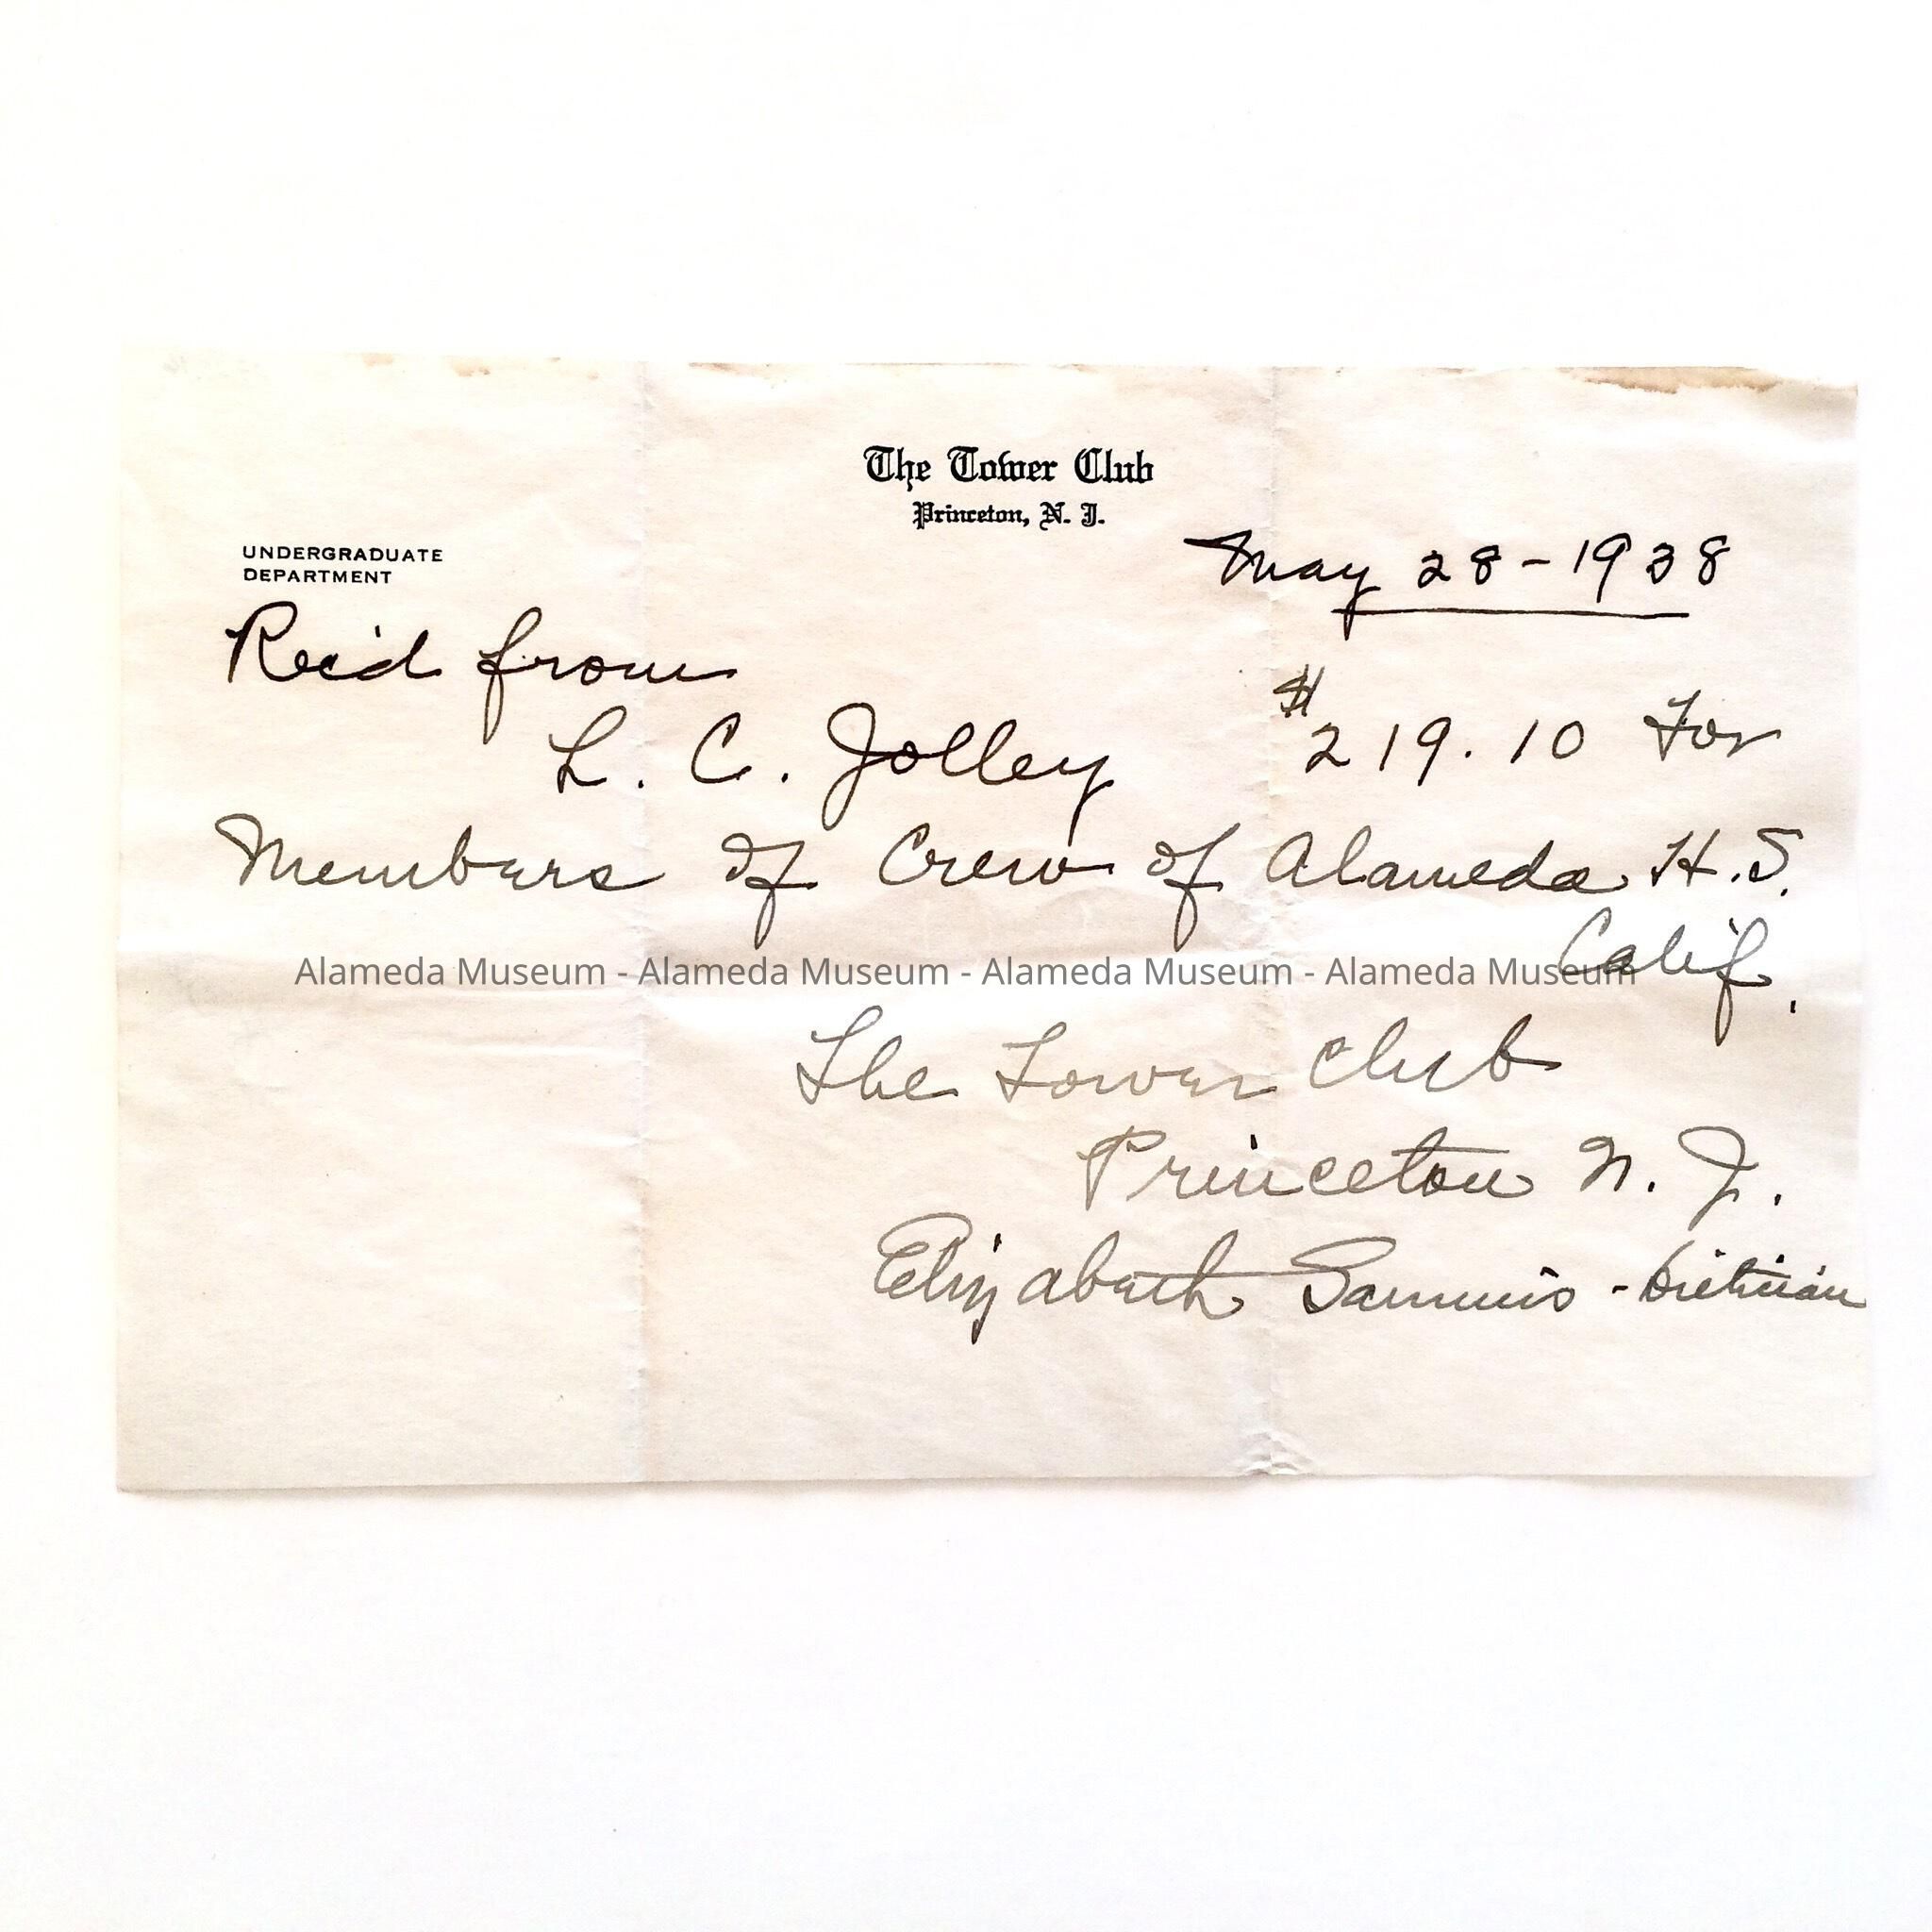 The Tower Club
Princeton, N. J.
UNDERGRADUATE
DEPARTMENT
May 28-1938
Rec'd from
L. C. Jolley $219.10 For
Members of Crew of Alameda H.S.
Calif.
Alameda Museum - Alameda Museum - Alameda Museum - Alameda Museum
The Tower Club
Princeton N. J.
Elizabeth Sammis - Dietician